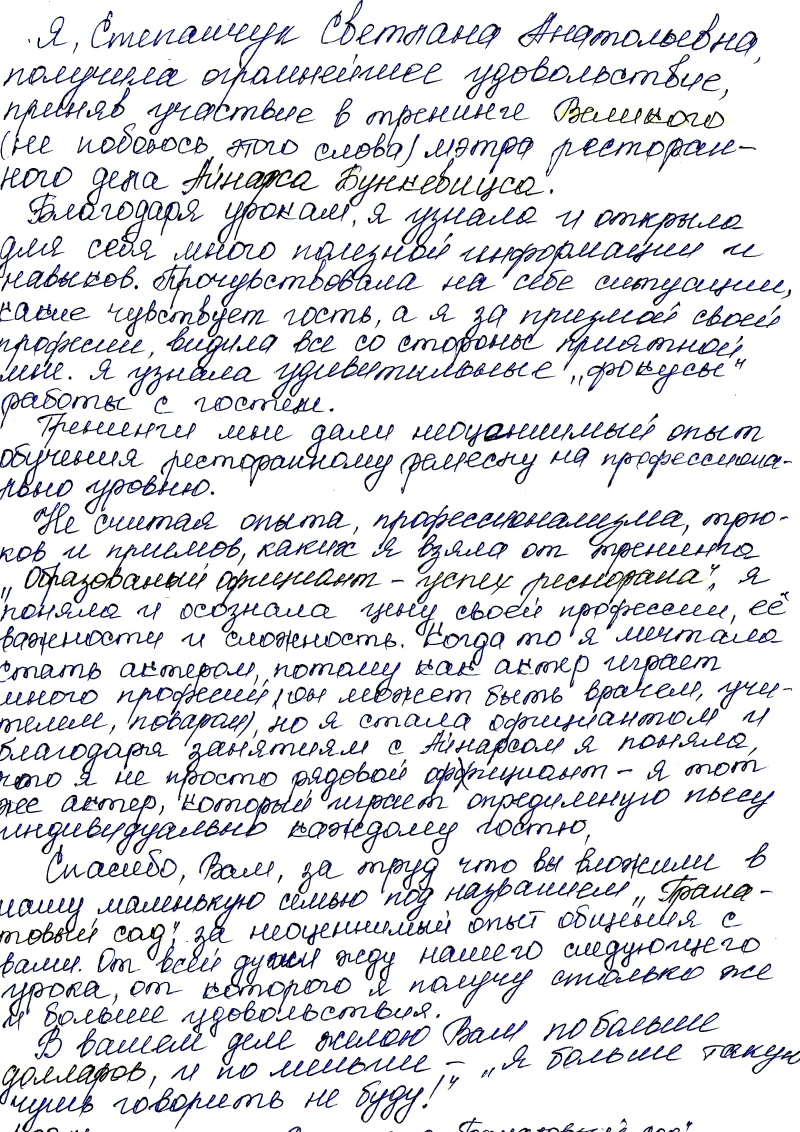 Я, Степанчук Светлана Анатольевна,
получила огромнейшее удовольствие,
приняв участие в тренинге Великого
(не побоюсь этого слова) мэтра ресторан-
ного дела Айнарса Бункевицса.
Благодаря урокам, я узнала и открыла
для себя много полезной информации и
навыков. Прочувствовала на себе ситуации,
какие чувствует гость, а я за призмой своей
профессии, видила все со стороны приятной
мне. Я узнала удивительные „фокусы"
работы с гостем.
Тренинги мне дали неоценимый опыт
обучения ресторанному ремеслу на профессиона-
льно уровню.
Не считая опыта, профессионализма, трю-
ков и приемов, каких я взяла от тренинга
„Образованый официант – успех ресторана", я
поняла и осознала цену своей профессии, её
важности и сложность. Когда то я мечтала
стать актером, потому как актер играет
много професий, (он может быть врачем, учи-
телем, поваром), но я стала официантом и
благодаря занятиям с Айнарсом я поняла,
что я не просто рядовой официант – я тот
же актер, который играет определенную пьесу
индивидуально каждому гостю,
Спасибо, Вам, за труд что вы вложили в
нашу маленькую семью под названием „Грана-
товый сад" за неоценнимый опыт общения с
вами. От всей души жду нашего следующего
урока, от которого я получу столько же
и больше удовольствия.
В вашем деле желаю Вам побольше
долларов, и по меньше – „Я больше такую
чушь говорить не буду!"